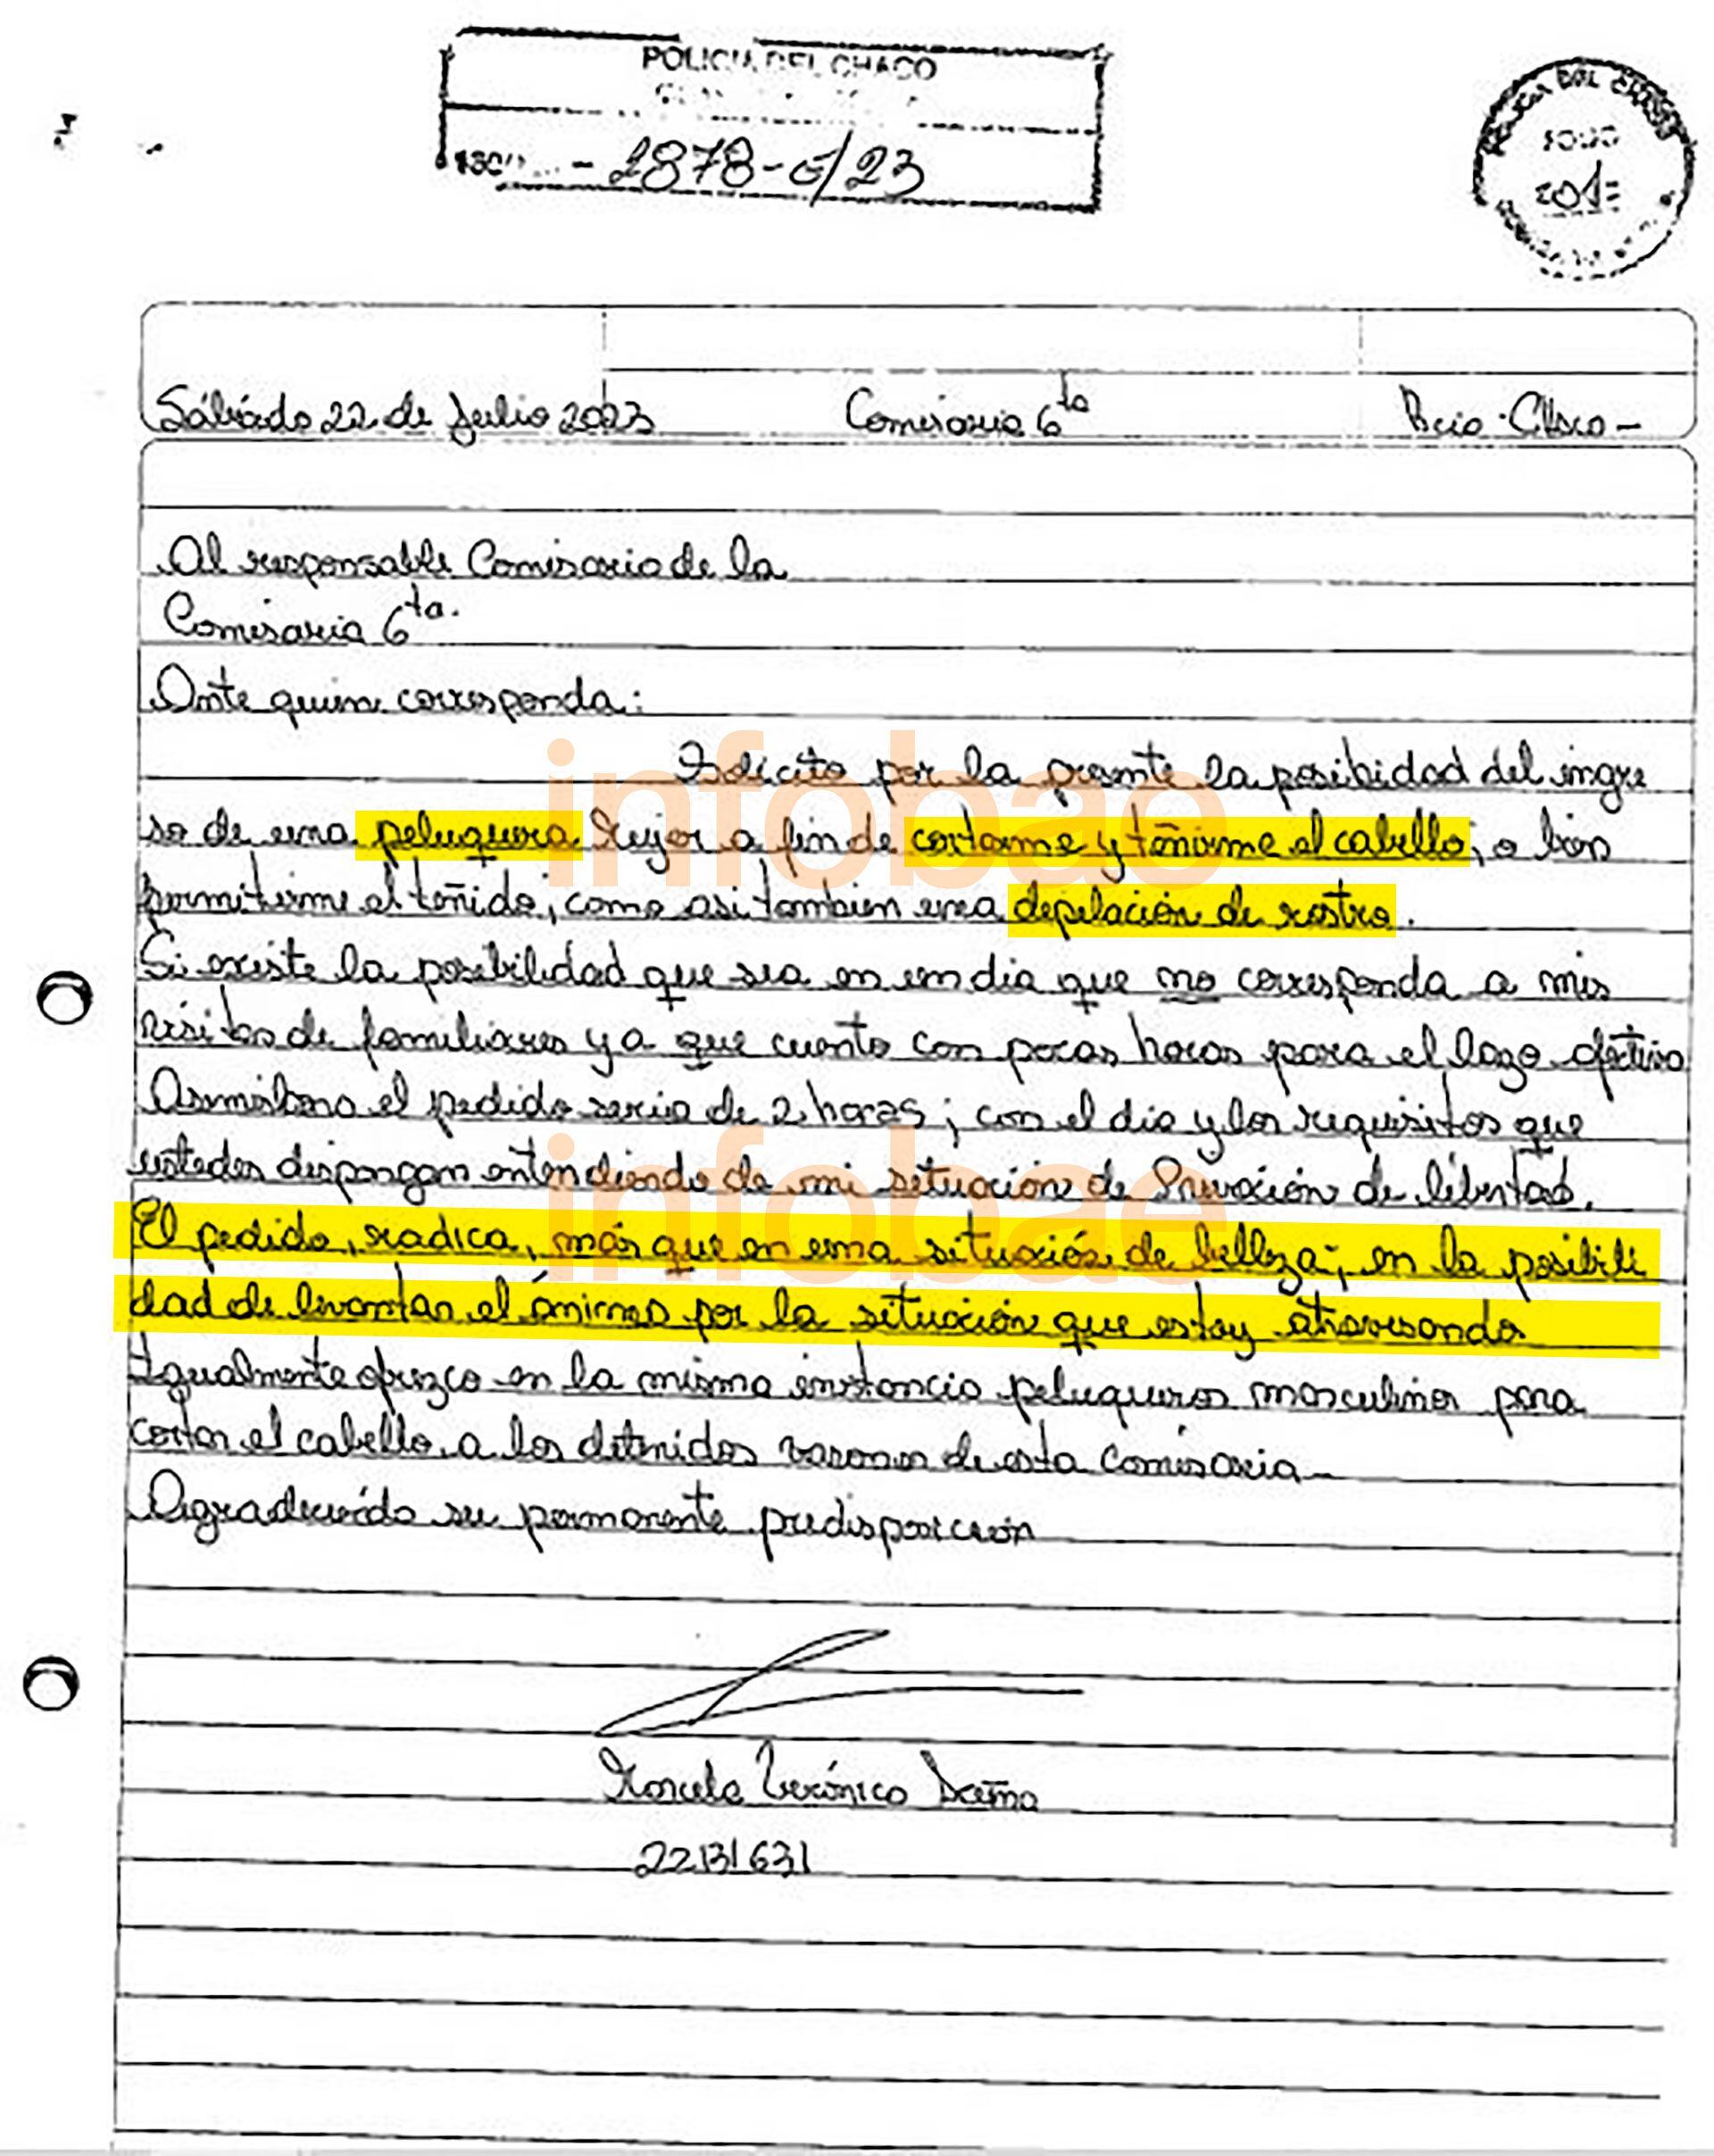 POLICIA DEL CHACO
- 2878-E/23
POLICIA DEL CHACO
FOLIO
201
Sábado 22 de Julio 2023 Comisaria 6ta Rcia - Chaco -
Al responsable Comisario de la
Comisaria 6ta.
Ante quien corresponda:
Solicito por la presente la posibidad del ingre
so de una peluquera mujer a fin de cortarme y teñirme el cabello, o bien
permitirme el teñido, como asi tambien una depilación de rostro.
Si existe la posibilidad que sea en un dia que no corresponda a mis
visitas de familiares y a que cuento con pocas horas para el lazo afectivo
Asimismo el pedido seria de 2 horas; con el dia y los requisitos que
ustedes dispongan entendiendo de mi situación de Privación de libertad.
El pedido, radica, más que en una situación de belleza; en la posibili
dad de levantar el ánimo por la situación que estoy atravesando
Igualmente ofrezco en la misma instancia peluqueros masculinos para
cortar el cabello a los detenidos varones de esta Comisaria -
Agradeciendo su permanente predisposición
Marcela Verónica Acuña
22131631
infobae
infobae